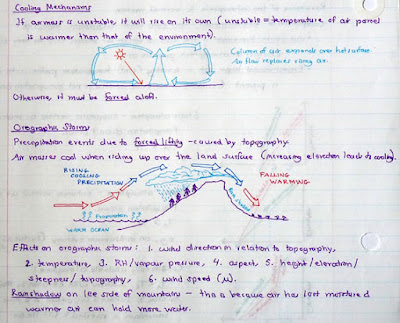 Cooling Mechanisms
If airmass is unstable, it will rise on its own (unstable = temperature of air parcel
is warmer than that of the environment).
Column of air expands over hot surface.
Air flow replaces rising air.
Otherwise, it must be forced aloft.
Orographic Storms
Precipitation events due to forced lifting - caused by topography.
Air masses cool when riding up over the land surface (increasing elevation leads to cooling).
RISING
COOLING
PRECIPITATION
FALLING
WARMING
Rain shadow
Evaporation
WARM OCEAN
Effects on orographic storms: 1. wind direction in relation to topography,
2. temperature, 3. RH/vapour pressure, 4. aspect, 5. height/elevation/
steepness/topography, 6. wind speed (μ).
Rainshadow on lee side of mountains - this is because air has lost moisture &
warmer air can hold more water.